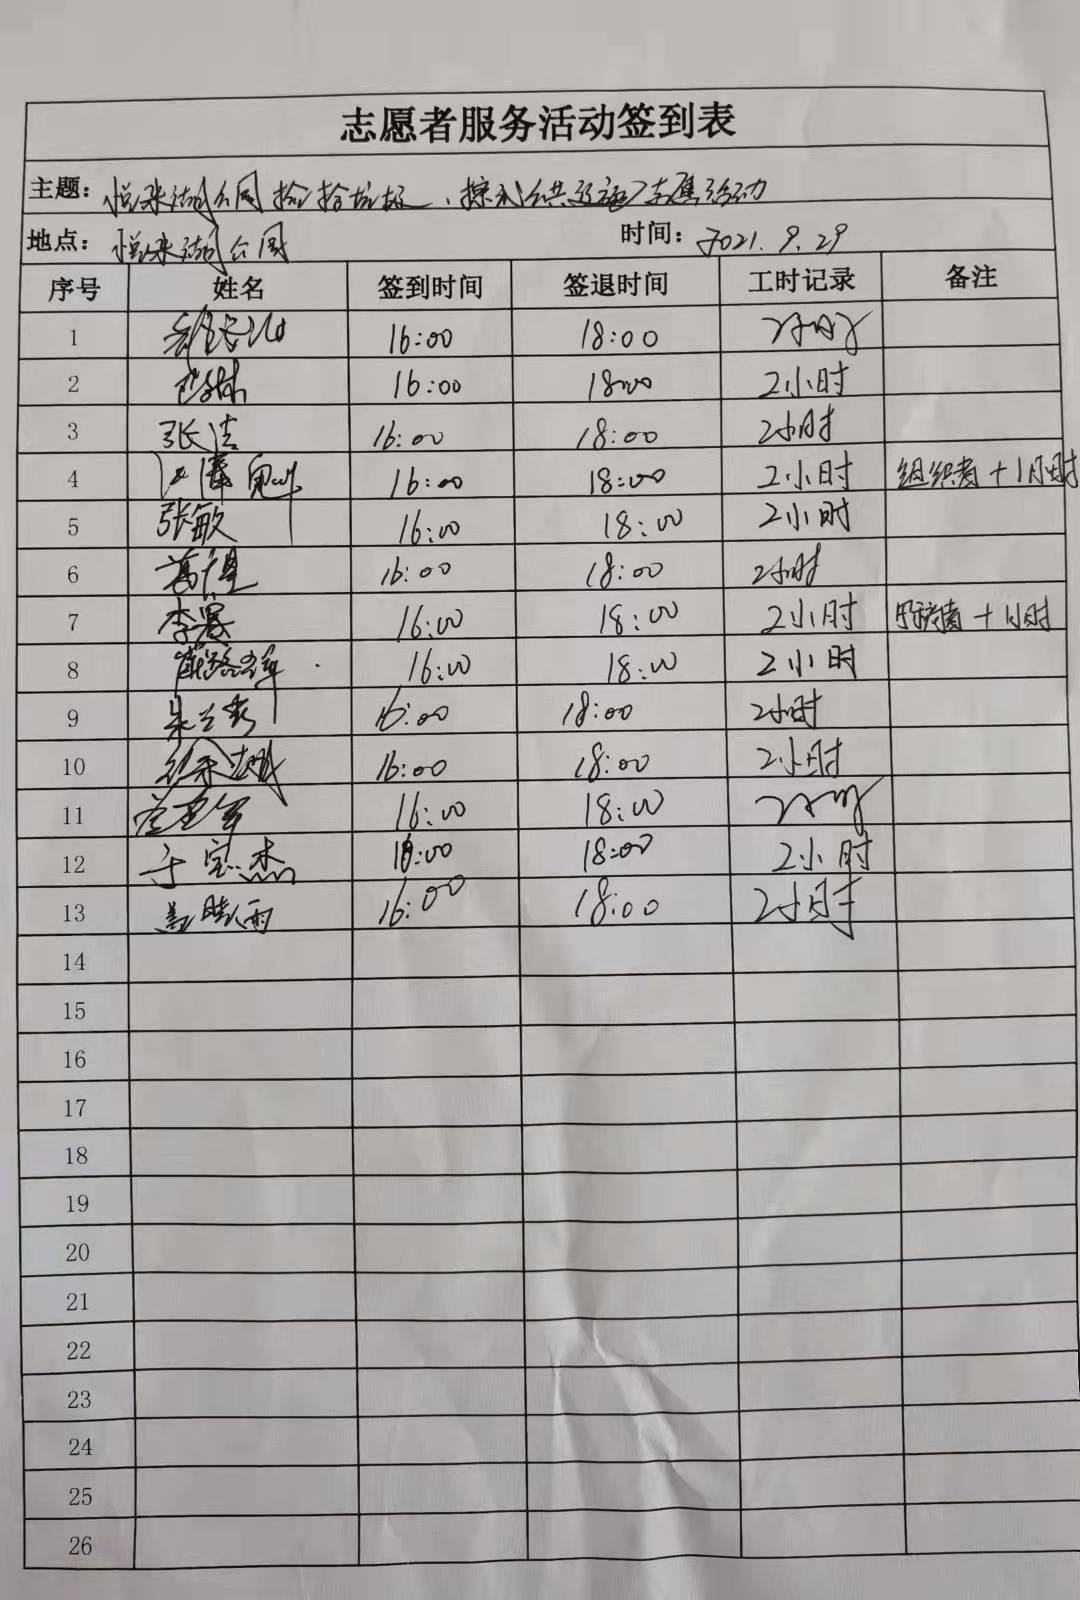 志愿者服务活动签到表
主题：悦来湖公园捡拾垃圾、擦拭公共设施志愿活动
地点：悦来湖公园 时间：2021.9.29
序号 姓名 签到时间 签退时间 工时记录 备注
1 16:00 18:00 2小时
2 16:00 18:00 2小时
3 张洁 16:00 18:00 2小时
4 16:00 18:00 2小时 组织者+1小时
5 张敏 16:00 18:00 2小时
6 16:00 18:00 2小时
7 16:00 18:00 2小时 +1小时
8 16:00 18:00 2小时
9 朱兰秀 16:00 18:00 2小时
10 16:00 18:00 2小时
11 16:00 18:00 2小时
12 于宝杰 16:00 18:00 2小时
13 盖晓雨 16:00 18:00 2小时
14
15
16
17
18
19
20
21
22
23
24
25
26